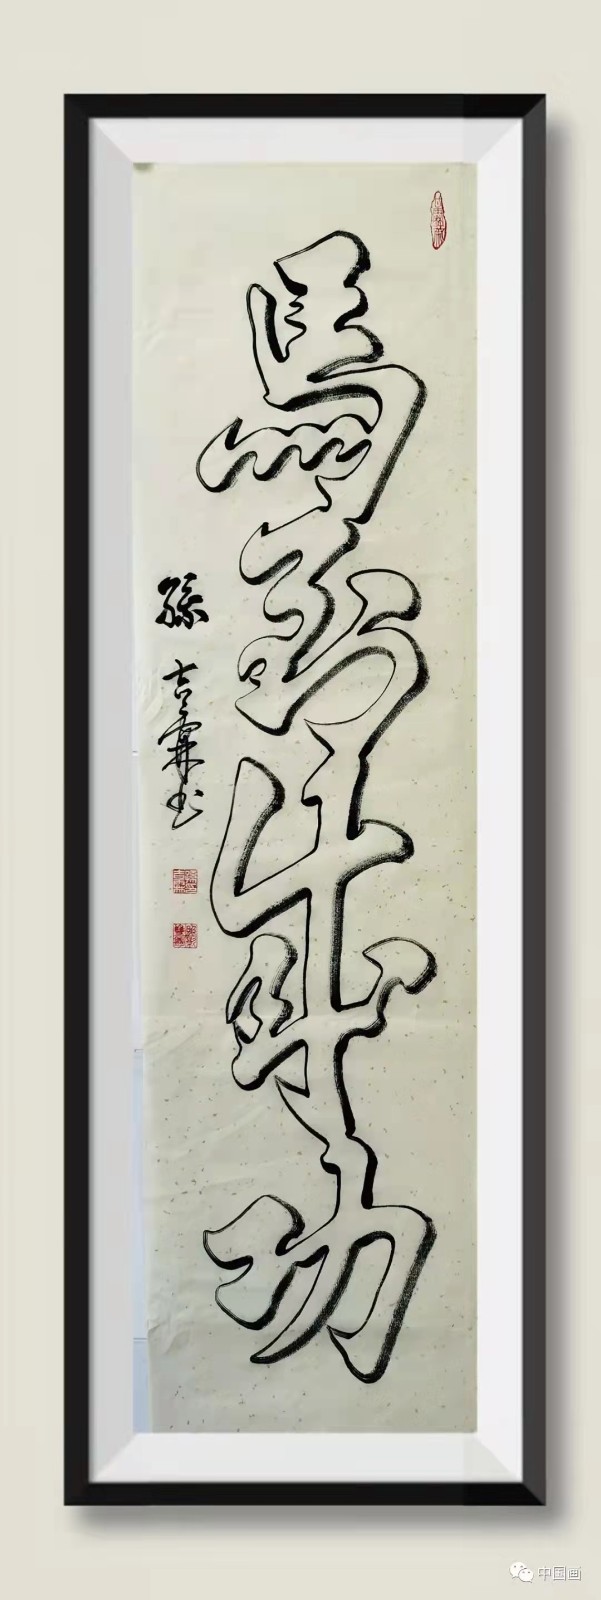 馬到成功
孫吉霖书
中国画